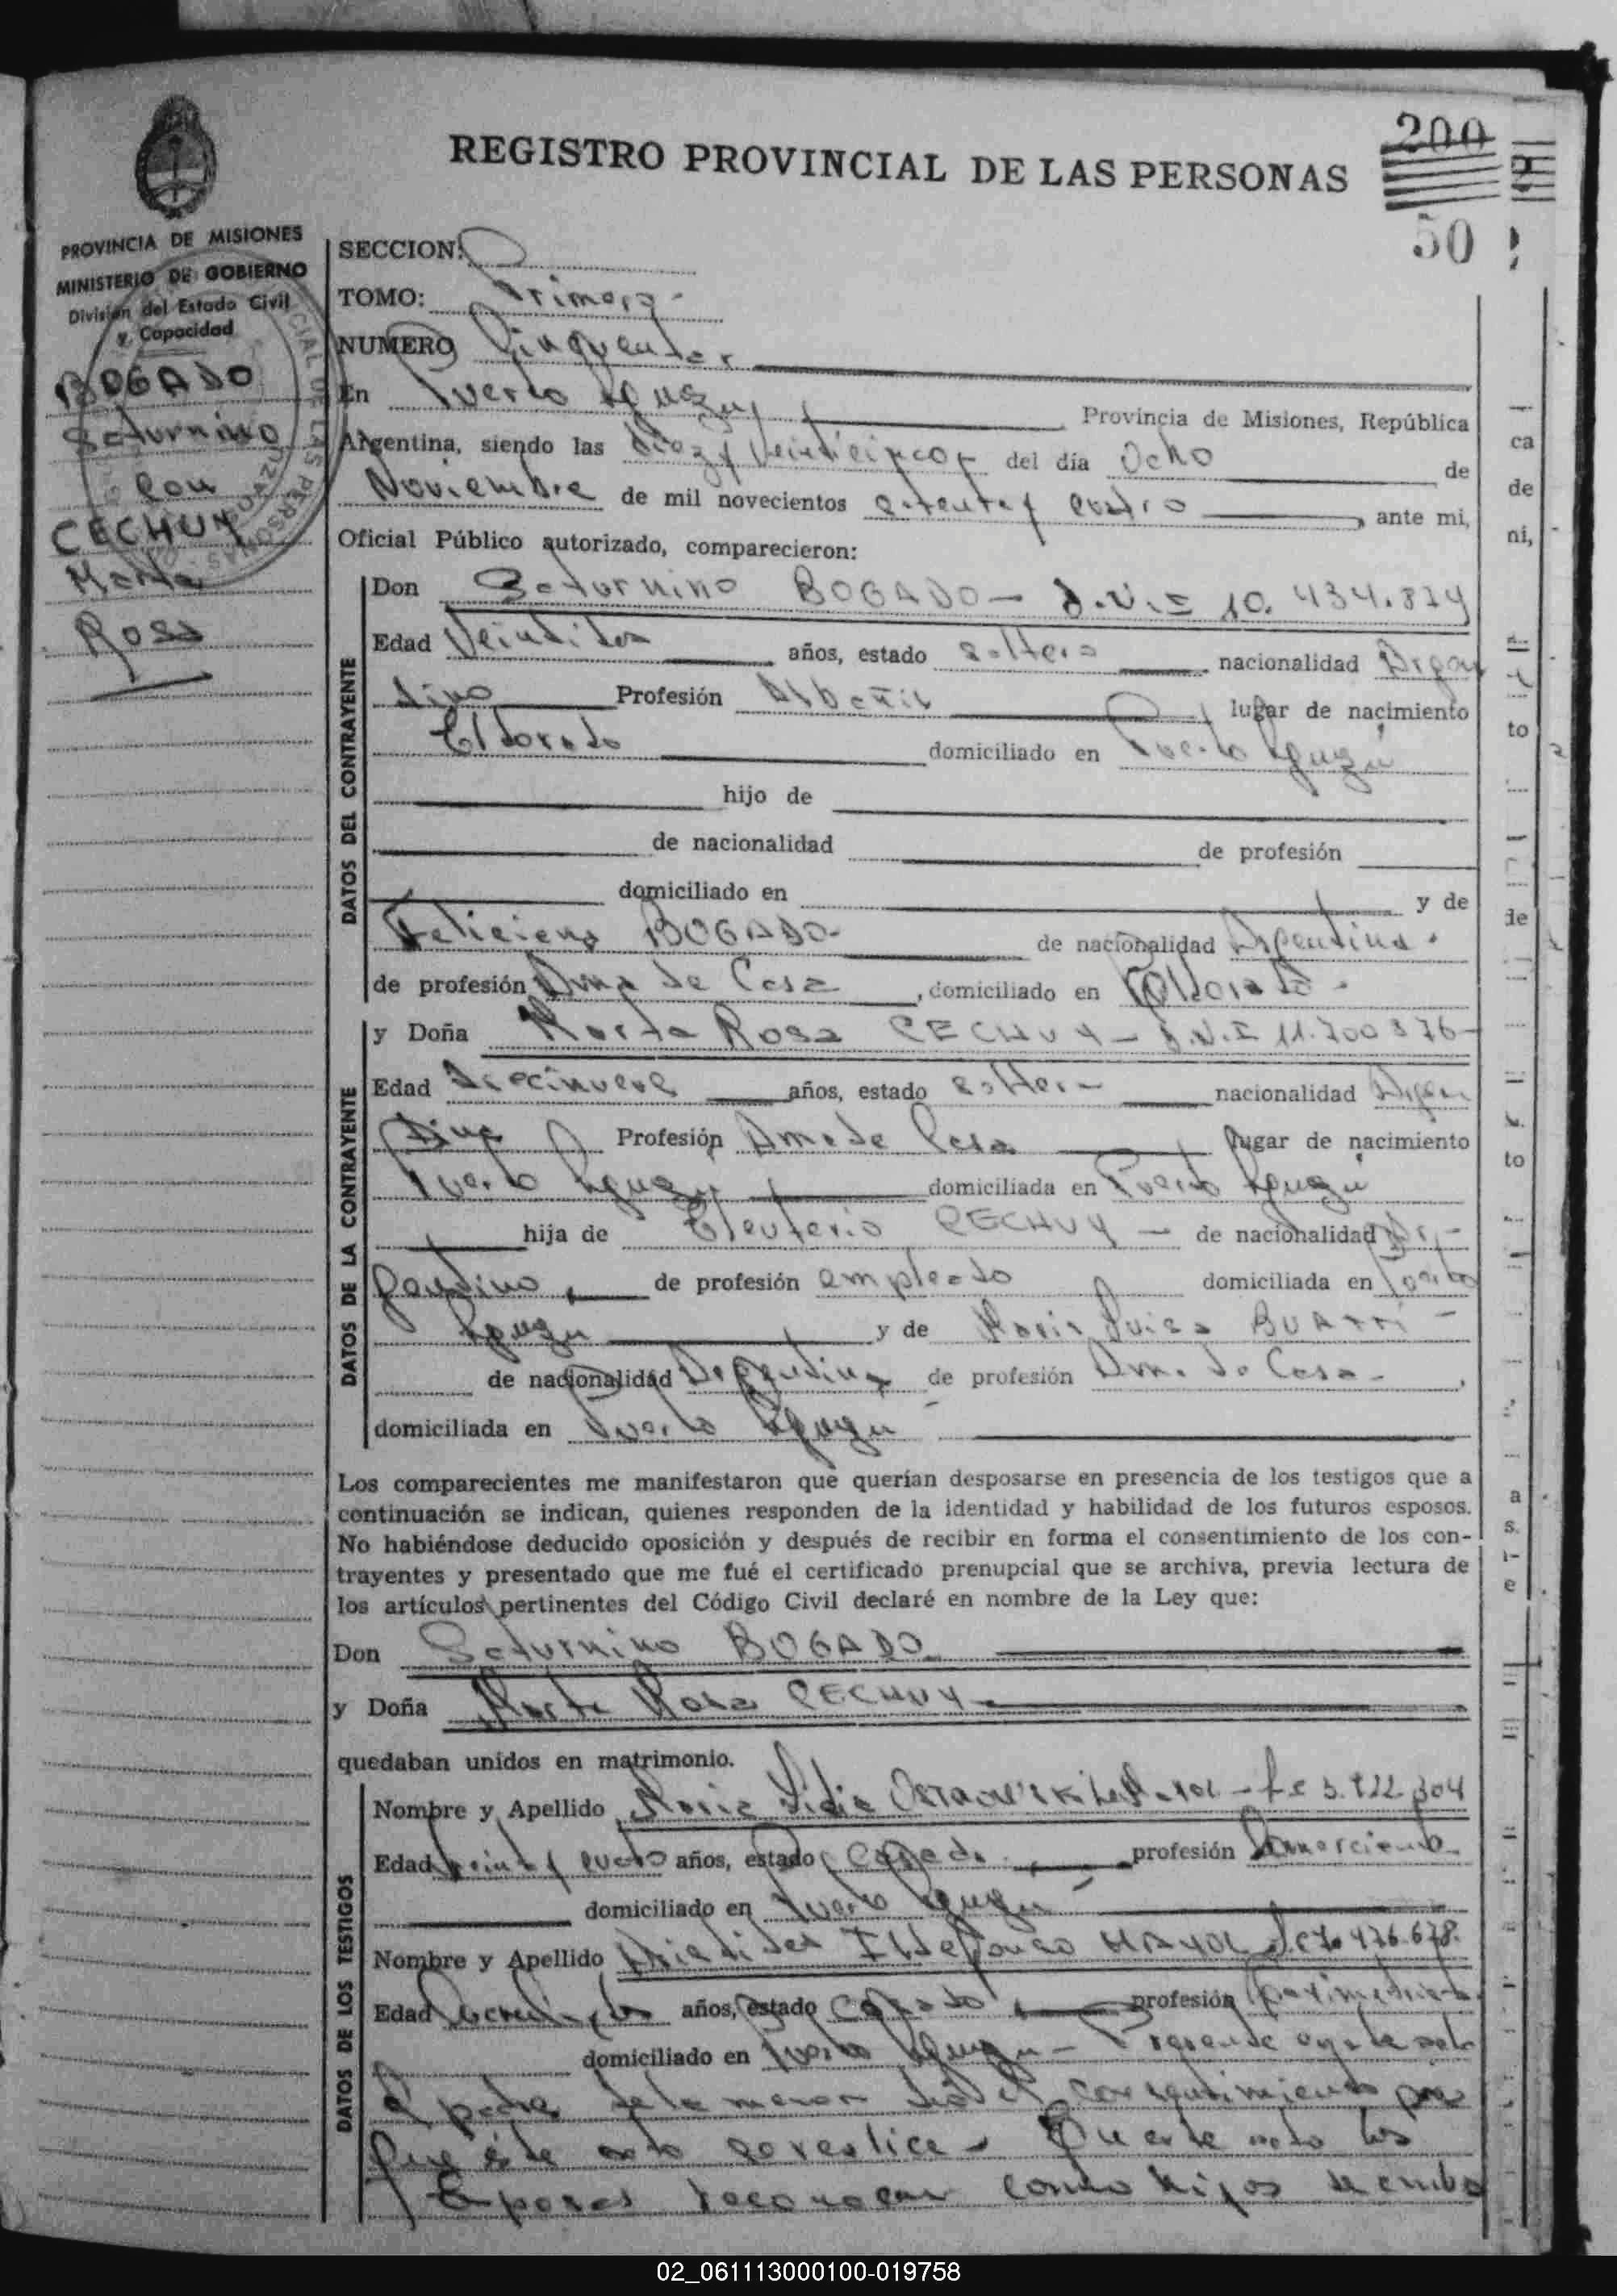 REGISTRO PROVINCIAL DE LAS PERSONAS
200
50
PROVINCIA DE MISIONES
MINISTERIO DE GOBIERNO
División del Estado Civil
y Capacidad
BOGADO
Saturnino
con
CECHUY
Marta
Rosa
SECCION:
TOMO: Primero
NUMERO Cinquenta
En Puerto Iguazú Provincia de Misiones, República
Argentina, siendo las diez y veinticinco del día Ocho de
Noviembre de mil novecientos setenta y cuatro ante mi,
Oficial Público autorizado, comparecieron:
DATOS DEL CONTRAYENTE
Don Saturnino BOGADO - D.N.I 10.434.874
Edad Veintidos años, estado soltero nacionalidad Argen
tino Profesión Albañil lugar de nacimiento
Eldorado domiciliado en Puerto Iguazú
hijo de
de nacionalidad de profesión
domiciliado en y de
Feliciana BOGADO- de nacionalidad Argentina.
de profesión Ama de Casa, domiciliado en Eldorado-
DATOS DE LA CONTRAYENTE
y Doña Marta Rosa CECHUY - D.N.I 11.700876-
Edad Diecinueve años, estado soltera nacionalidad Argen
tina Profesión Ama de Casa lugar de nacimiento
Puerto Iguazu domiciliada en Puerto Iguazú
hija de Eleuterio CECHUY - de nacionalidad Ar-
gentino de profesión empleado domiciliada en Puerto
Iguazu y de Maria Luisa
de nacionalidad Argentina de profesión Ama de Casa-,
domiciliada en Puerto Iguazu
Los comparecientes me manifestaron que querían desposarse en presencia de los testigos que a
continuación se indican, quienes responden de la identidad y habilidad de los futuros esposos.
No habiéndose deducido oposición y después de recibir en forma el consentimiento de los con-
trayentes y presentado que me fué el certificado prenupcial que se archiva, previa lectura de
los artículos pertinentes del Código Civil declaré en nombre de la Ley que:
Don Saturnino BOGADO
y Doña Marta Rosa CECHUY-
quedaban unidos en matrimonio.
DATOS DE LOS TESTIGOS
Nombre y Apellido Maria Lidia
Edad años, estado Casada profesión Comerciante
domiciliado en Puerto Iguazú
Nombre y Apellido Ildefonso MAYOL
Edad años, estado Casado profesión
domiciliado en Puerto Iguazu - Presente en este acto
el padre de la menor dió el consentimiento para
que éste acto se realice - Que en este acto los
Esposos reconocen como hijos de ambos
02_061113000100-019758